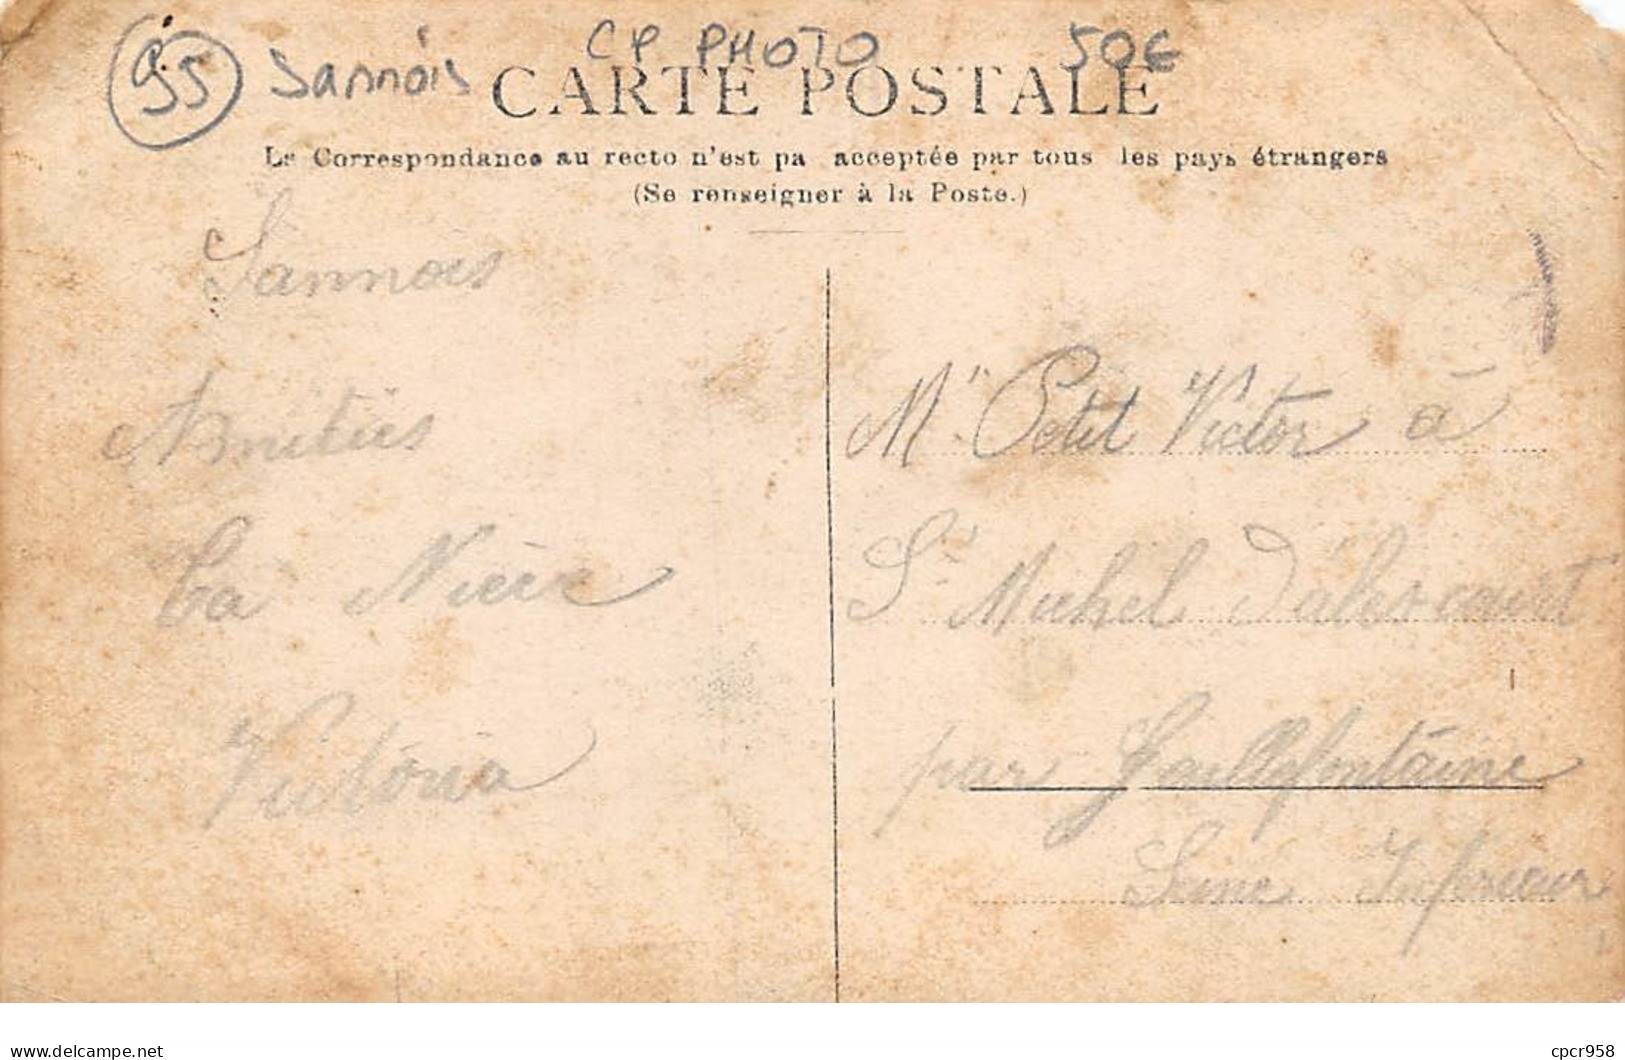 95 Sannois CP PHOTO 50€
CARTE POSTALE
La Correspondance au recto n'est pa acceptée par tous les pays étrangers
(Se renseigner à la Poste.)
Sannois
Amitiés
Ta Nièce
Victoria
Mr Petit Victor à
St Michel d'alescourt
par Gaillefontaine
Seine Inferieur
delcampe.net
cpcr958